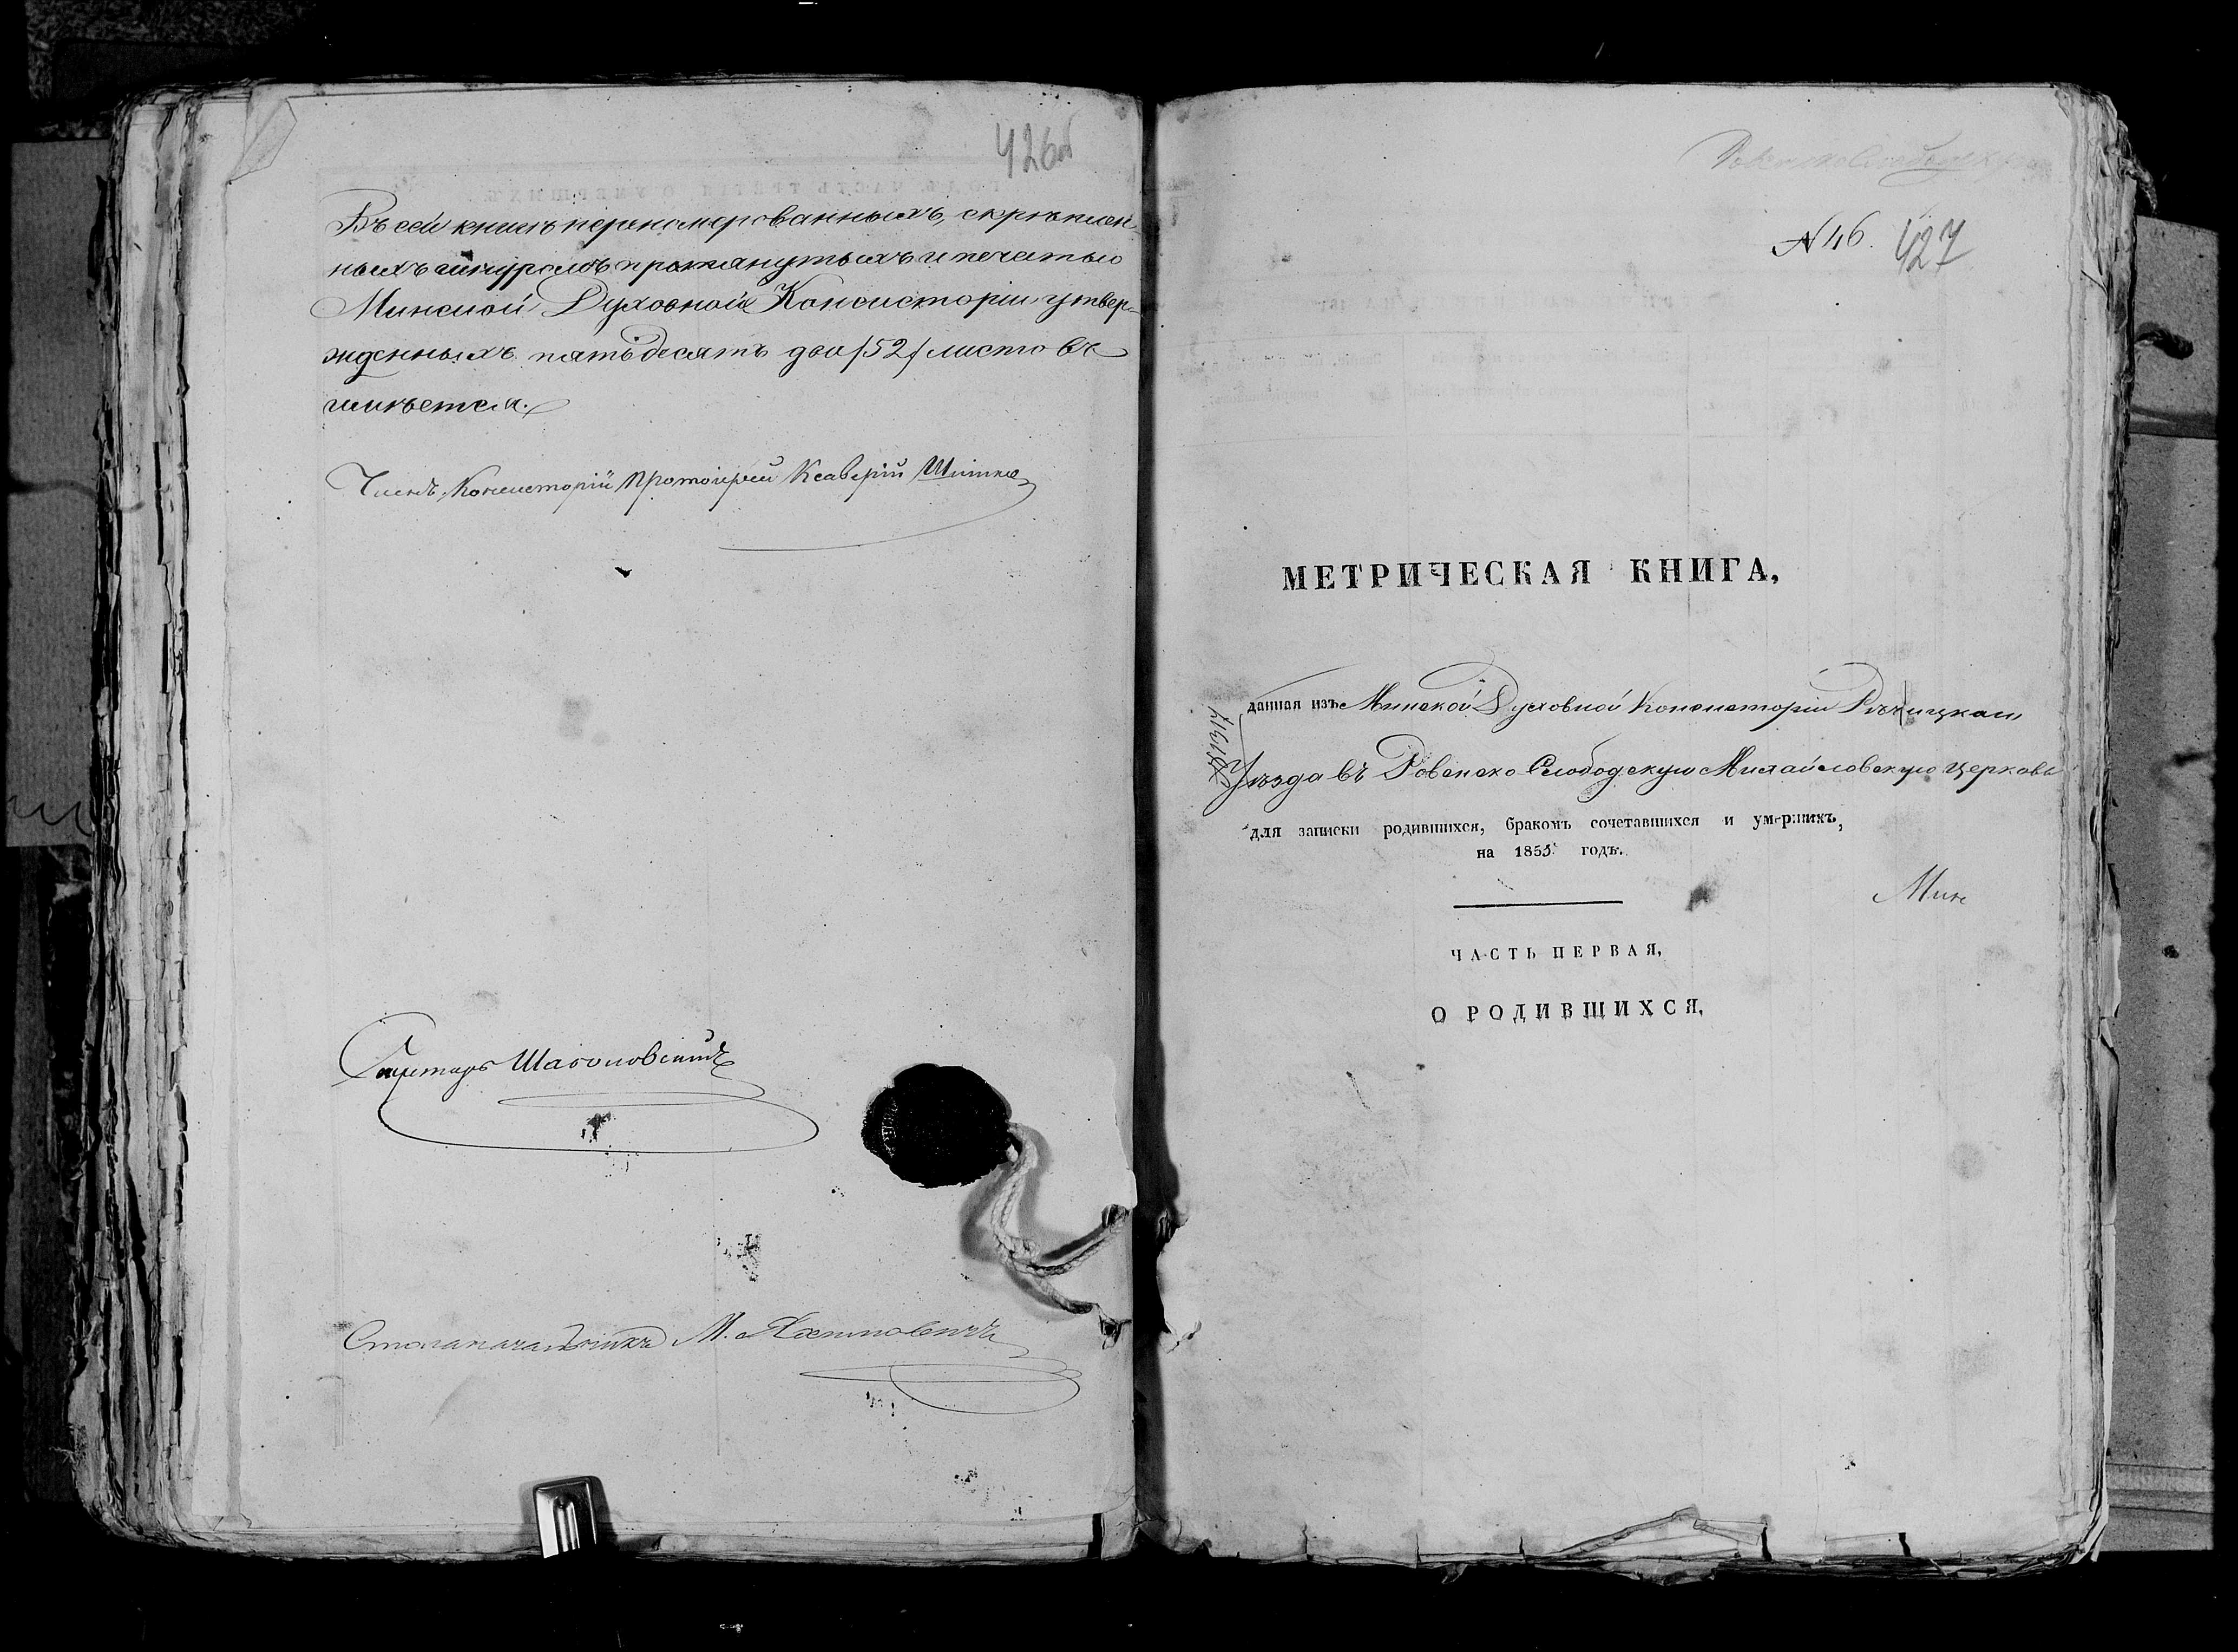 426об
Въ сей книгѣ переномерованныхъ, скрѣплен-
ныхъ шнуромъ протянутыхъ и печатью
Минской Духовной Консисторіи утвер-
жденныхъ пятьдесятъ два /52/ листовъ
имѣется.
Членъ Консисторіи Протоіерей Ксаверій
Секретарь
Столоначальникъ М.
№ 46. 427
МЕТРИЧЕСКАЯ КНИГА,
данная изъ Минской Духовной Консисторіи Рѣчицкаго
Уѣзда въ Ровенско Слободскую Михайловскую церковь
для записки родившихся, бракомъ сочетавшихся и умершихъ,
на 1855 годъ.
Мин
ЧАСТЬ ПЕРВАЯ,
О РОДИВШИХСЯ,